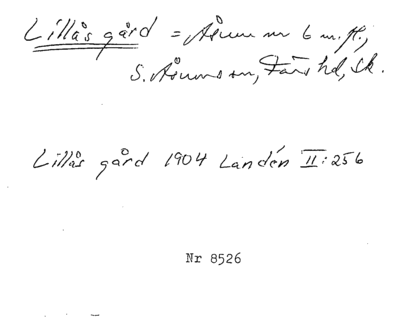 Lillås gård = Åsum nr 6 m.fl.,
S. Åsums sn, Färs hd, Sk.
Lillås gård 1904 Landén II:256
Nr 8526